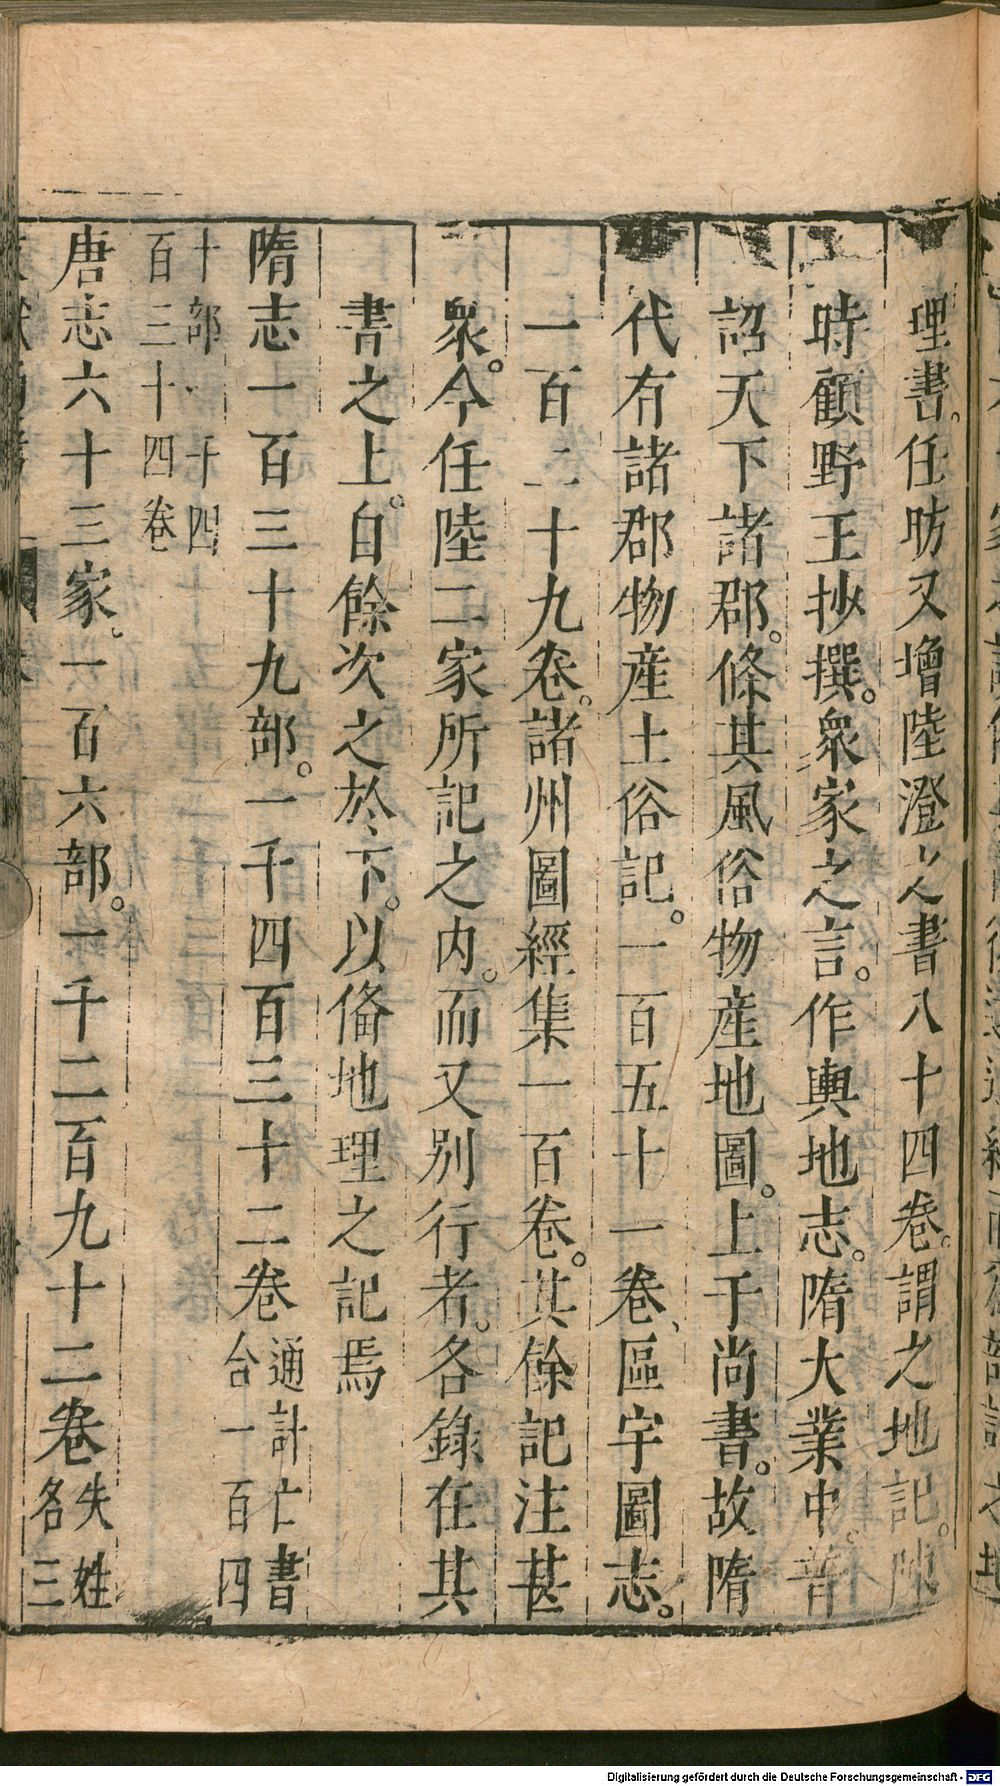 理書。任昉又增陸澄之書八十四卷。謂之地記。陳
時顧野王抄撰。衆家之言。作輿地志。隋大業中。普
詔天下諸郡。條其風俗物產地圖。上于尚書。故隋
代有諸郡物產土俗記。一百五十一卷、區宇圖志。
一百二十九卷。諸州圖經集一百卷。其餘記注甚
衆。今任陸二家所記之內。而又別行者。各錄在其
書之上。自餘次之於下。以俻地理之記焉
隋志一百三十九部。一千四百三十二卷
通計亡書
合一百四
十部 千四
百三十四卷
唐志六十三家。一百六部。一千二百九十二卷
失姓
名三
Digitalisierung gefördert durch die Deutsche Forschungsgemeinschaft - DFG